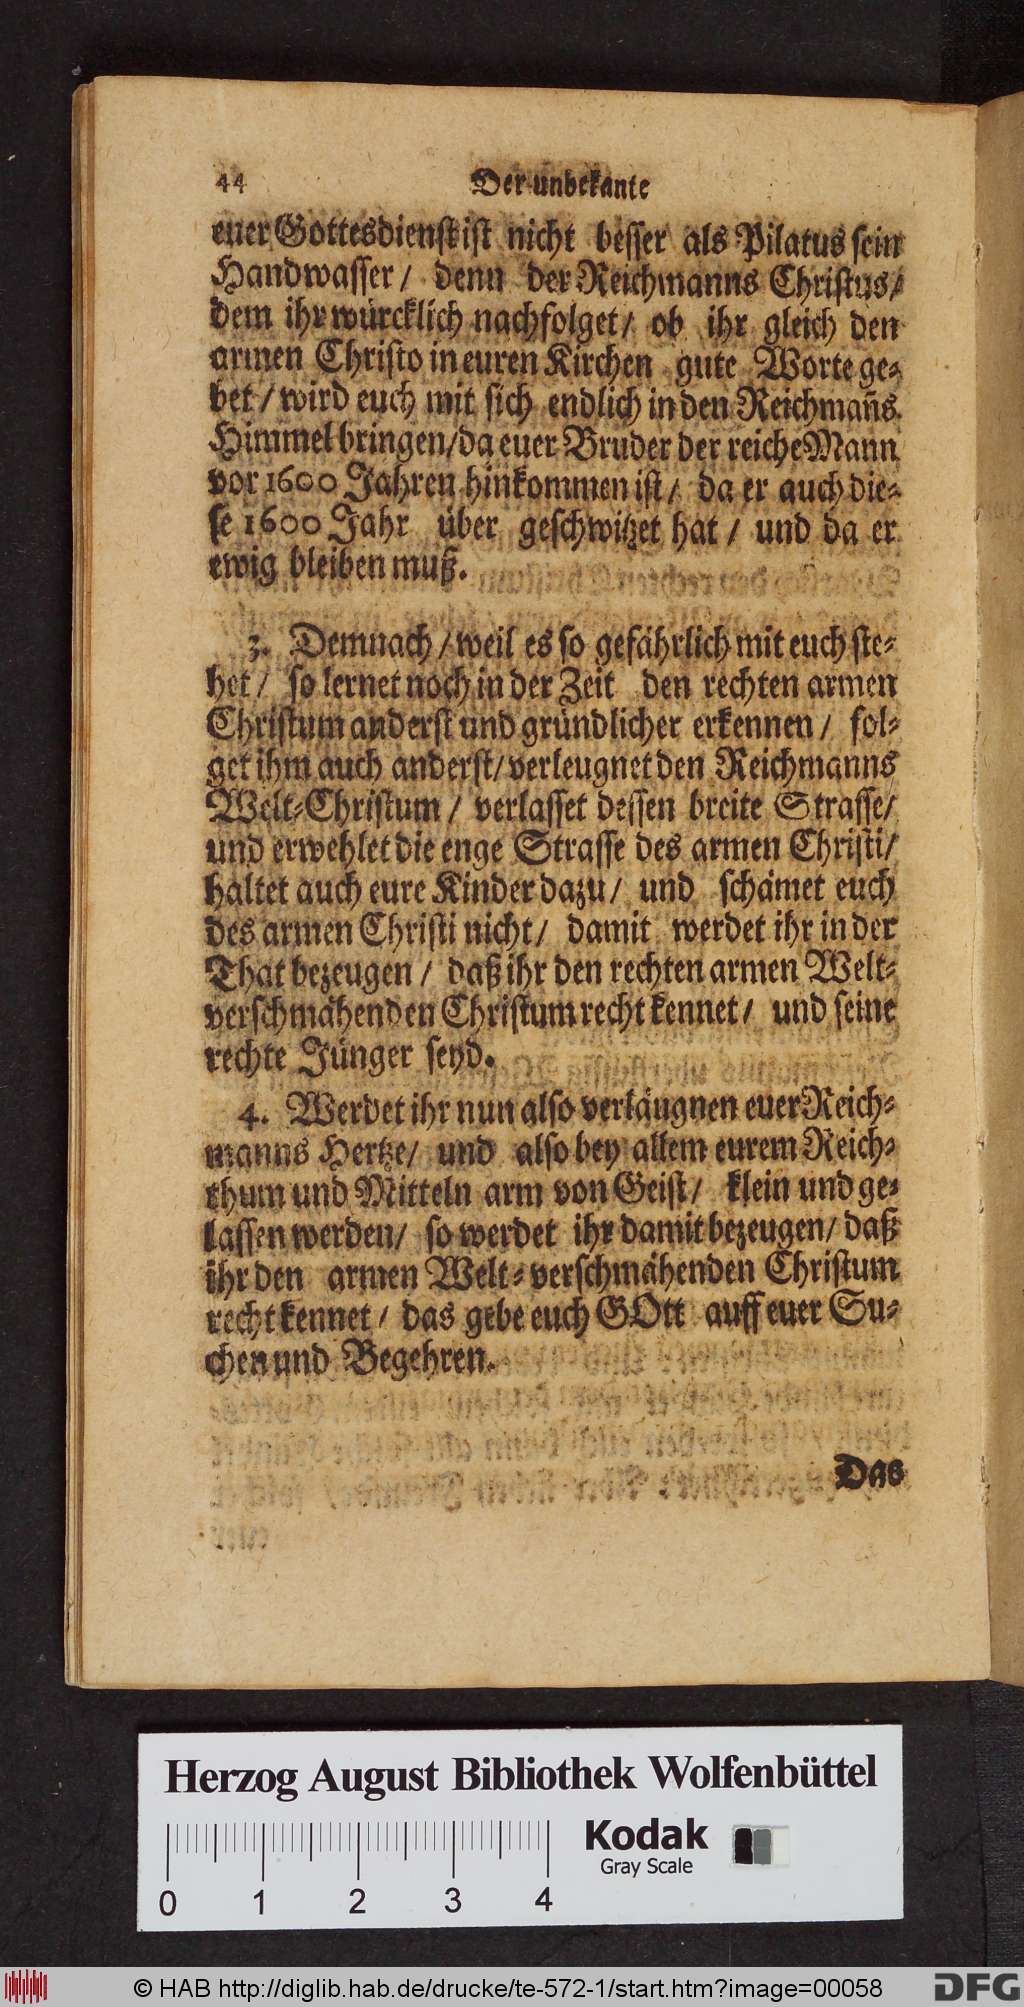 44 Der unbekante
euer Gottesdienst ist nicht besser als Pilatus sein
Handwasser / denn der Reichmanns Christus /
dem ihr würcklich nachfolget / ob ihr gleich den
armen Christo in euren Kirchen gute Worte ge⸗
bet / wird euch mit sich endlich in den Reichmañs
Himmel bringen / da euer Bruder der reiche Mann
vor 1600 Jahren hinkommen ist / da er auch die⸗
se 1600 Jahr über geschwitzet hat / und da er
ewig bleiben muß.
3. Demnach / weil es so gefährlich mit euch ste⸗
het / so lernet noch in der Zeit den rechten armen
Christum anderst und gründlicher erkennen / fol⸗
get ihm auch anderst / verleugnet den Reichmanns
Welt⸗Christum / verlasset dessen breite Strasse /
und erwehlet die enge Strasse des armen Christi /
haltet auch eure Kinder dazu / und schämet euch
des armen Christi nicht / damit werdet ihr in der
That bezeugen / daß ihr den rechten armen Welt⸗
verschmähenden Christum recht kennet / und seine
rechte Jünger seyd.
4. Werdet ihr nun also verläugnen euer Reich⸗
manns Hertze / und also bey allem eurem Reich⸗
thum und Mitteln arm von Geist / klein und ge⸗
lassen werden / so werdet ihr damit bezeugen / daß
ihr den armen Welt⸗verschmähenden Christum
recht kennet / das gebe euch GOtt auff euer Su⸗
chen und Begehren.
Das
Herzog August Bibliothek Wolfenbüttel
Kodak
Gray Scale
0 1 2 3 4
© HAB http://diglib.hab.de/drucke/te-572-1/start.htm?image=00058
DFG